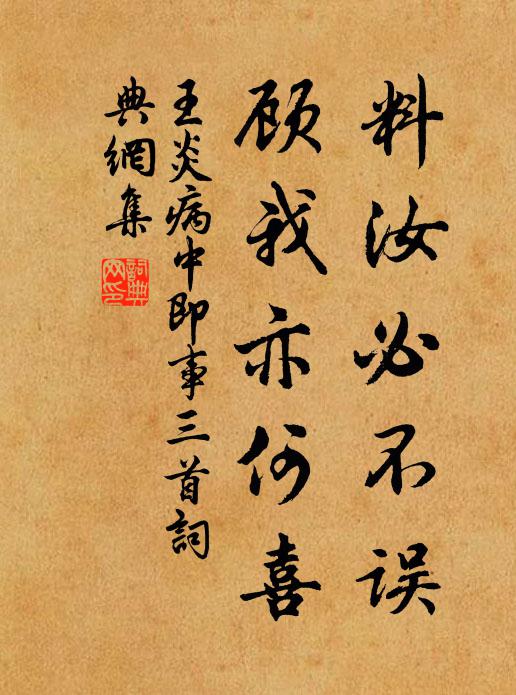 料汝必不误
顾我亦何喜
王炎病中即事三首詞
典網集
詞典
网印